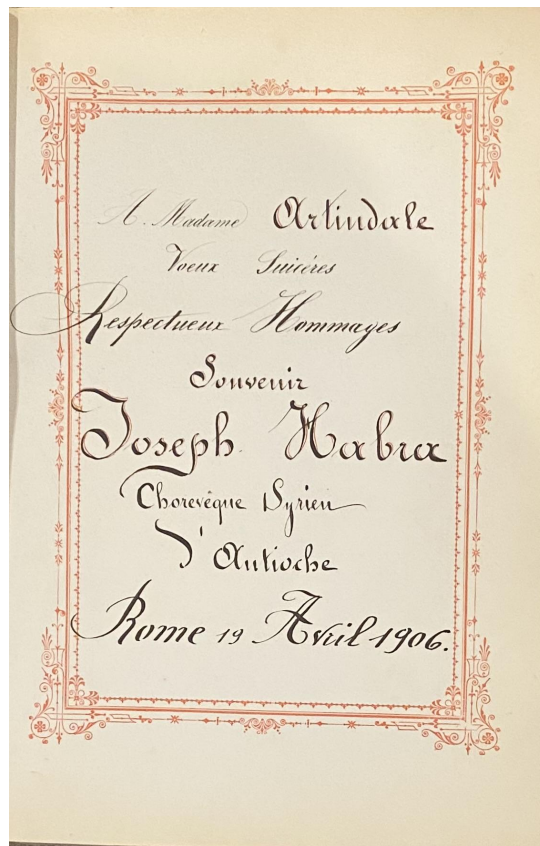 A. Madame Artindale
Voeux Sincéres
Respectueux Hommages
Souvenir
Joseph Habra
Chorevêque Syrien
D'Antioche
Rome 19 Avril 1906.